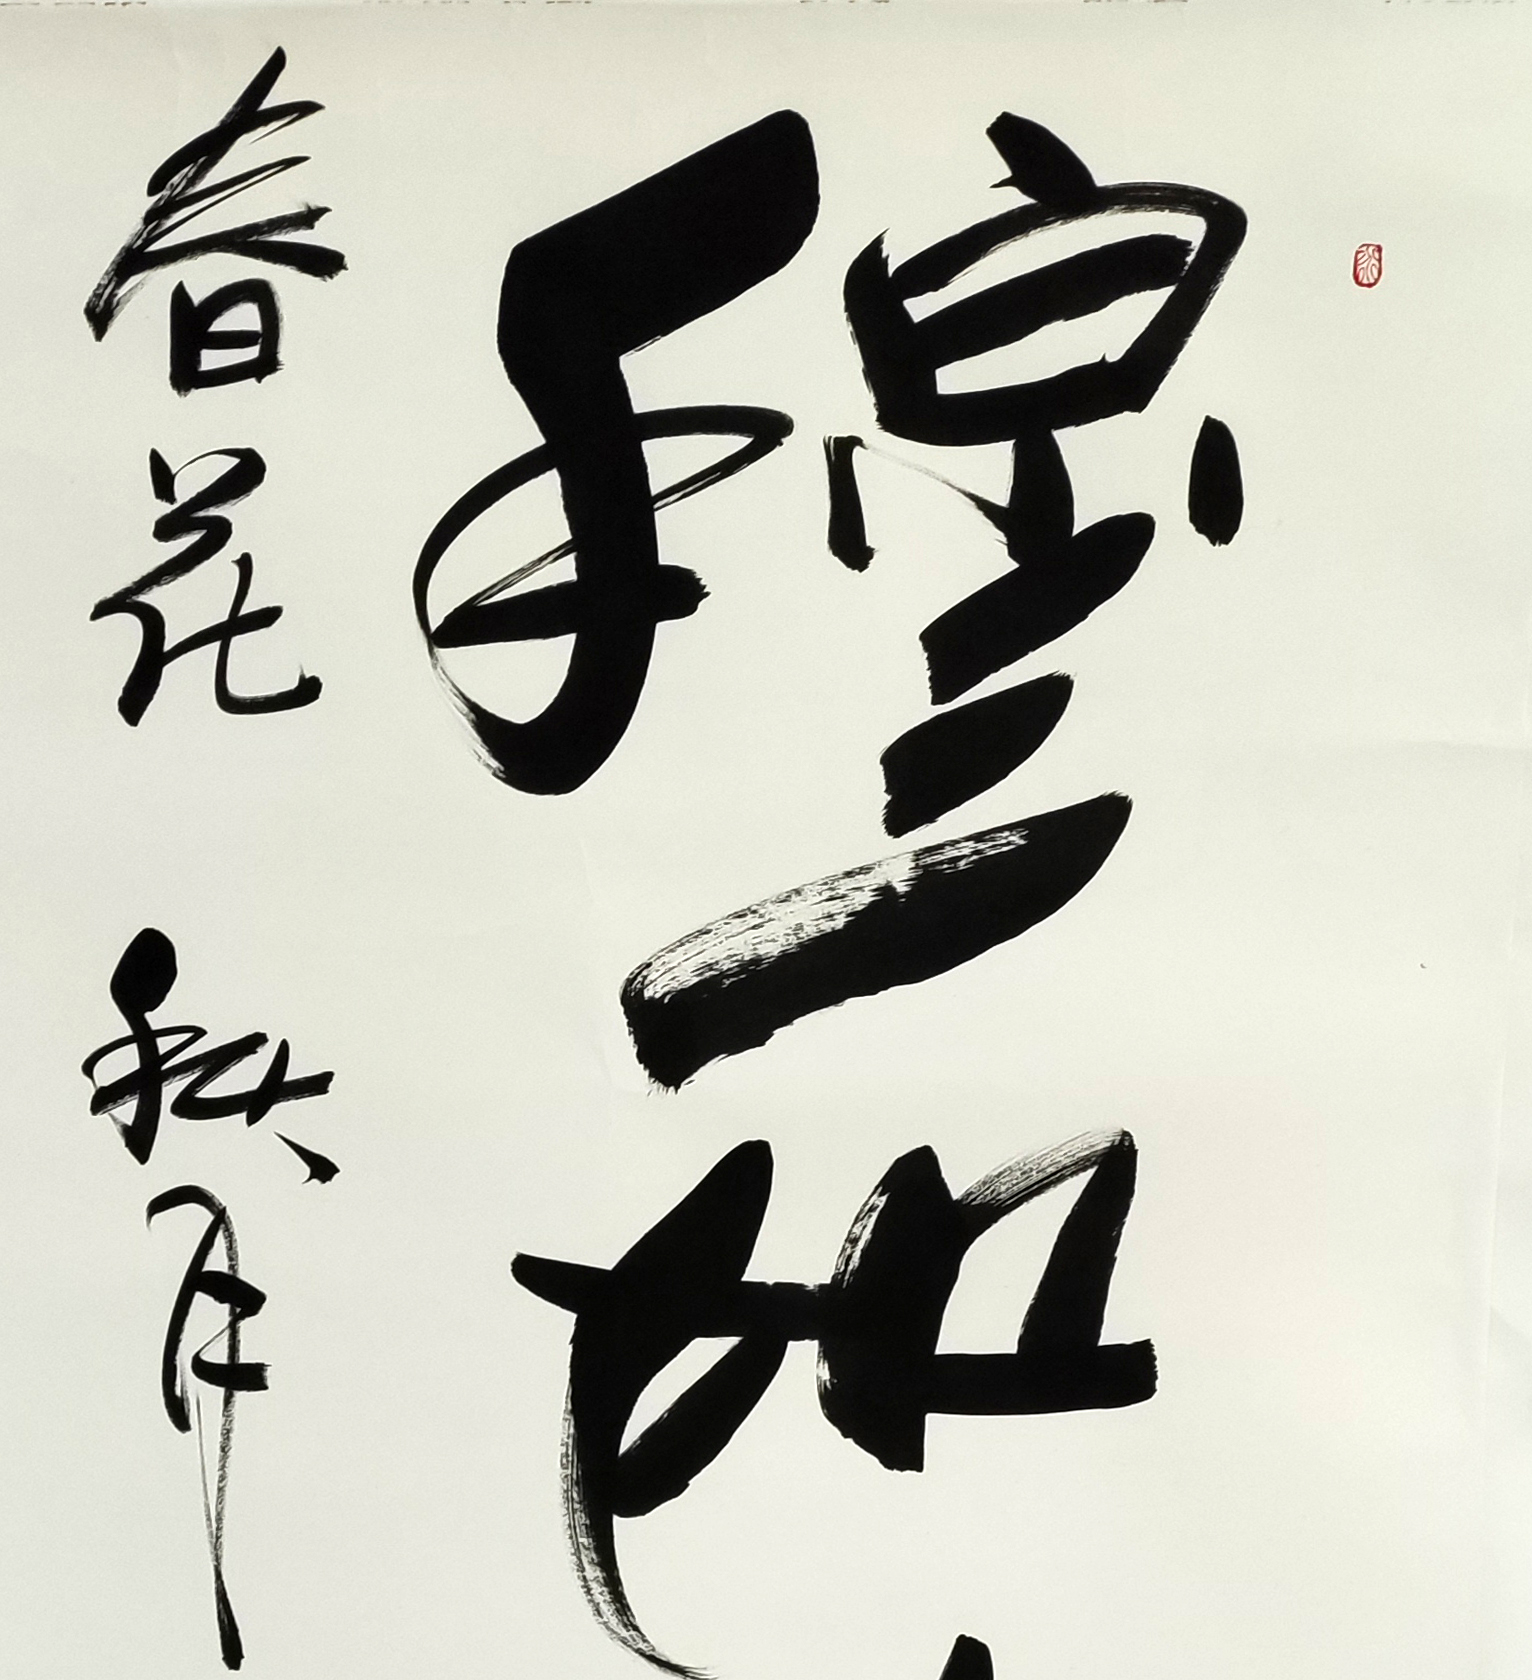 穆如
春花 秋月